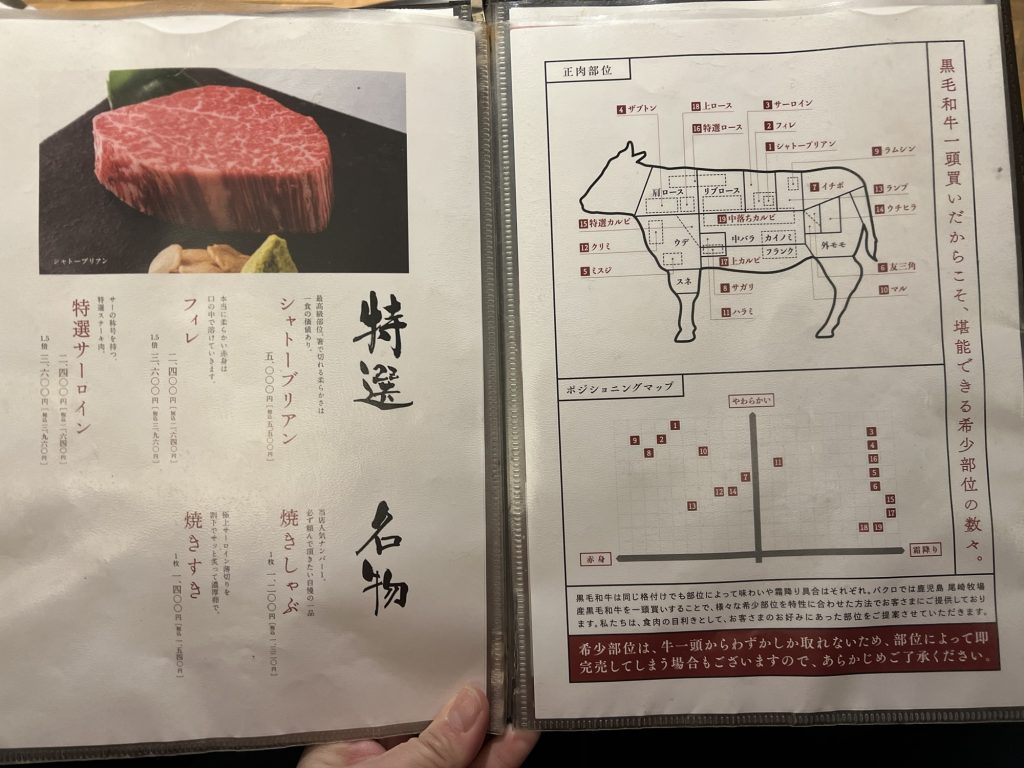 シャトーブリアン
特選
シャトーブリアン
最高級部位。箸で切れる柔らかさは
一食の価値あり。
五、〇〇〇円[税込五、五〇〇円]
フィレ
本当に柔らかい赤身は
口の中で溶けていきます
二、四〇〇円[税込二、六四〇円]
1.5倍 三、六〇〇円[税込三、九六〇円]
特選サーロイン
サーの称号を持つ、
特選ステーキ肉。
二、四〇〇円[税込二、六四〇円]
1.5倍 三、六〇〇円[税込三、九六〇円]
名物
焼きしゃぶ
当店人気ナンバー1、
必ず頼んで頂きたい自慢の一品
1枚 一、二〇〇円[税込一、三二〇円]
焼きすき
極上サーロイン薄切りを
割下でサッと炙って濃厚卵で。
1枚 一、四〇〇円[税込一、五四〇円]
黒毛和牛一頭買いだからこそ、堪能できる希少部位の数々。
正肉部位
4 ザブトン
18 上ロース
3 サーロイン
16 特選ロース
2 フィレ
1 シャトーブリアン
9 ラムシン
肩ロース
リブロース
7 イチボ
13 ランプ
14 ウチヒラ
15 特選カルビ
19 中落ちカルビ
12 クリミ
ウデ
中バラ
カイノミ
外モモ
フランク
5 ミスジ
17 上カルビ
6 友三角
スネ
8 サガリ
10 マル
11 ハラミ
ポジショニングマップ
やわらかい
1
2
9
8
10
3
4
16
11
5
7
6
12
14
15
13
17
18
19
赤身
霜降り
黒毛和牛は同じ格付けでも部位によって味わいや霜降り具合はそれぞれ。バクロでは鹿児島 尾崎牧場
産黒毛和牛を一頭買いすることで、様々な希少部位を特性に合わせた方法でお客さまにご提供しており
ます。私たちは、食肉の目利きとして、お客さまのお好みにあった部位をご提案させていただきます。
希少部位は、牛一頭からわずかしか取れないため、部位によって即
完売してしまう場合もございますので、あらかじめご了承ください。